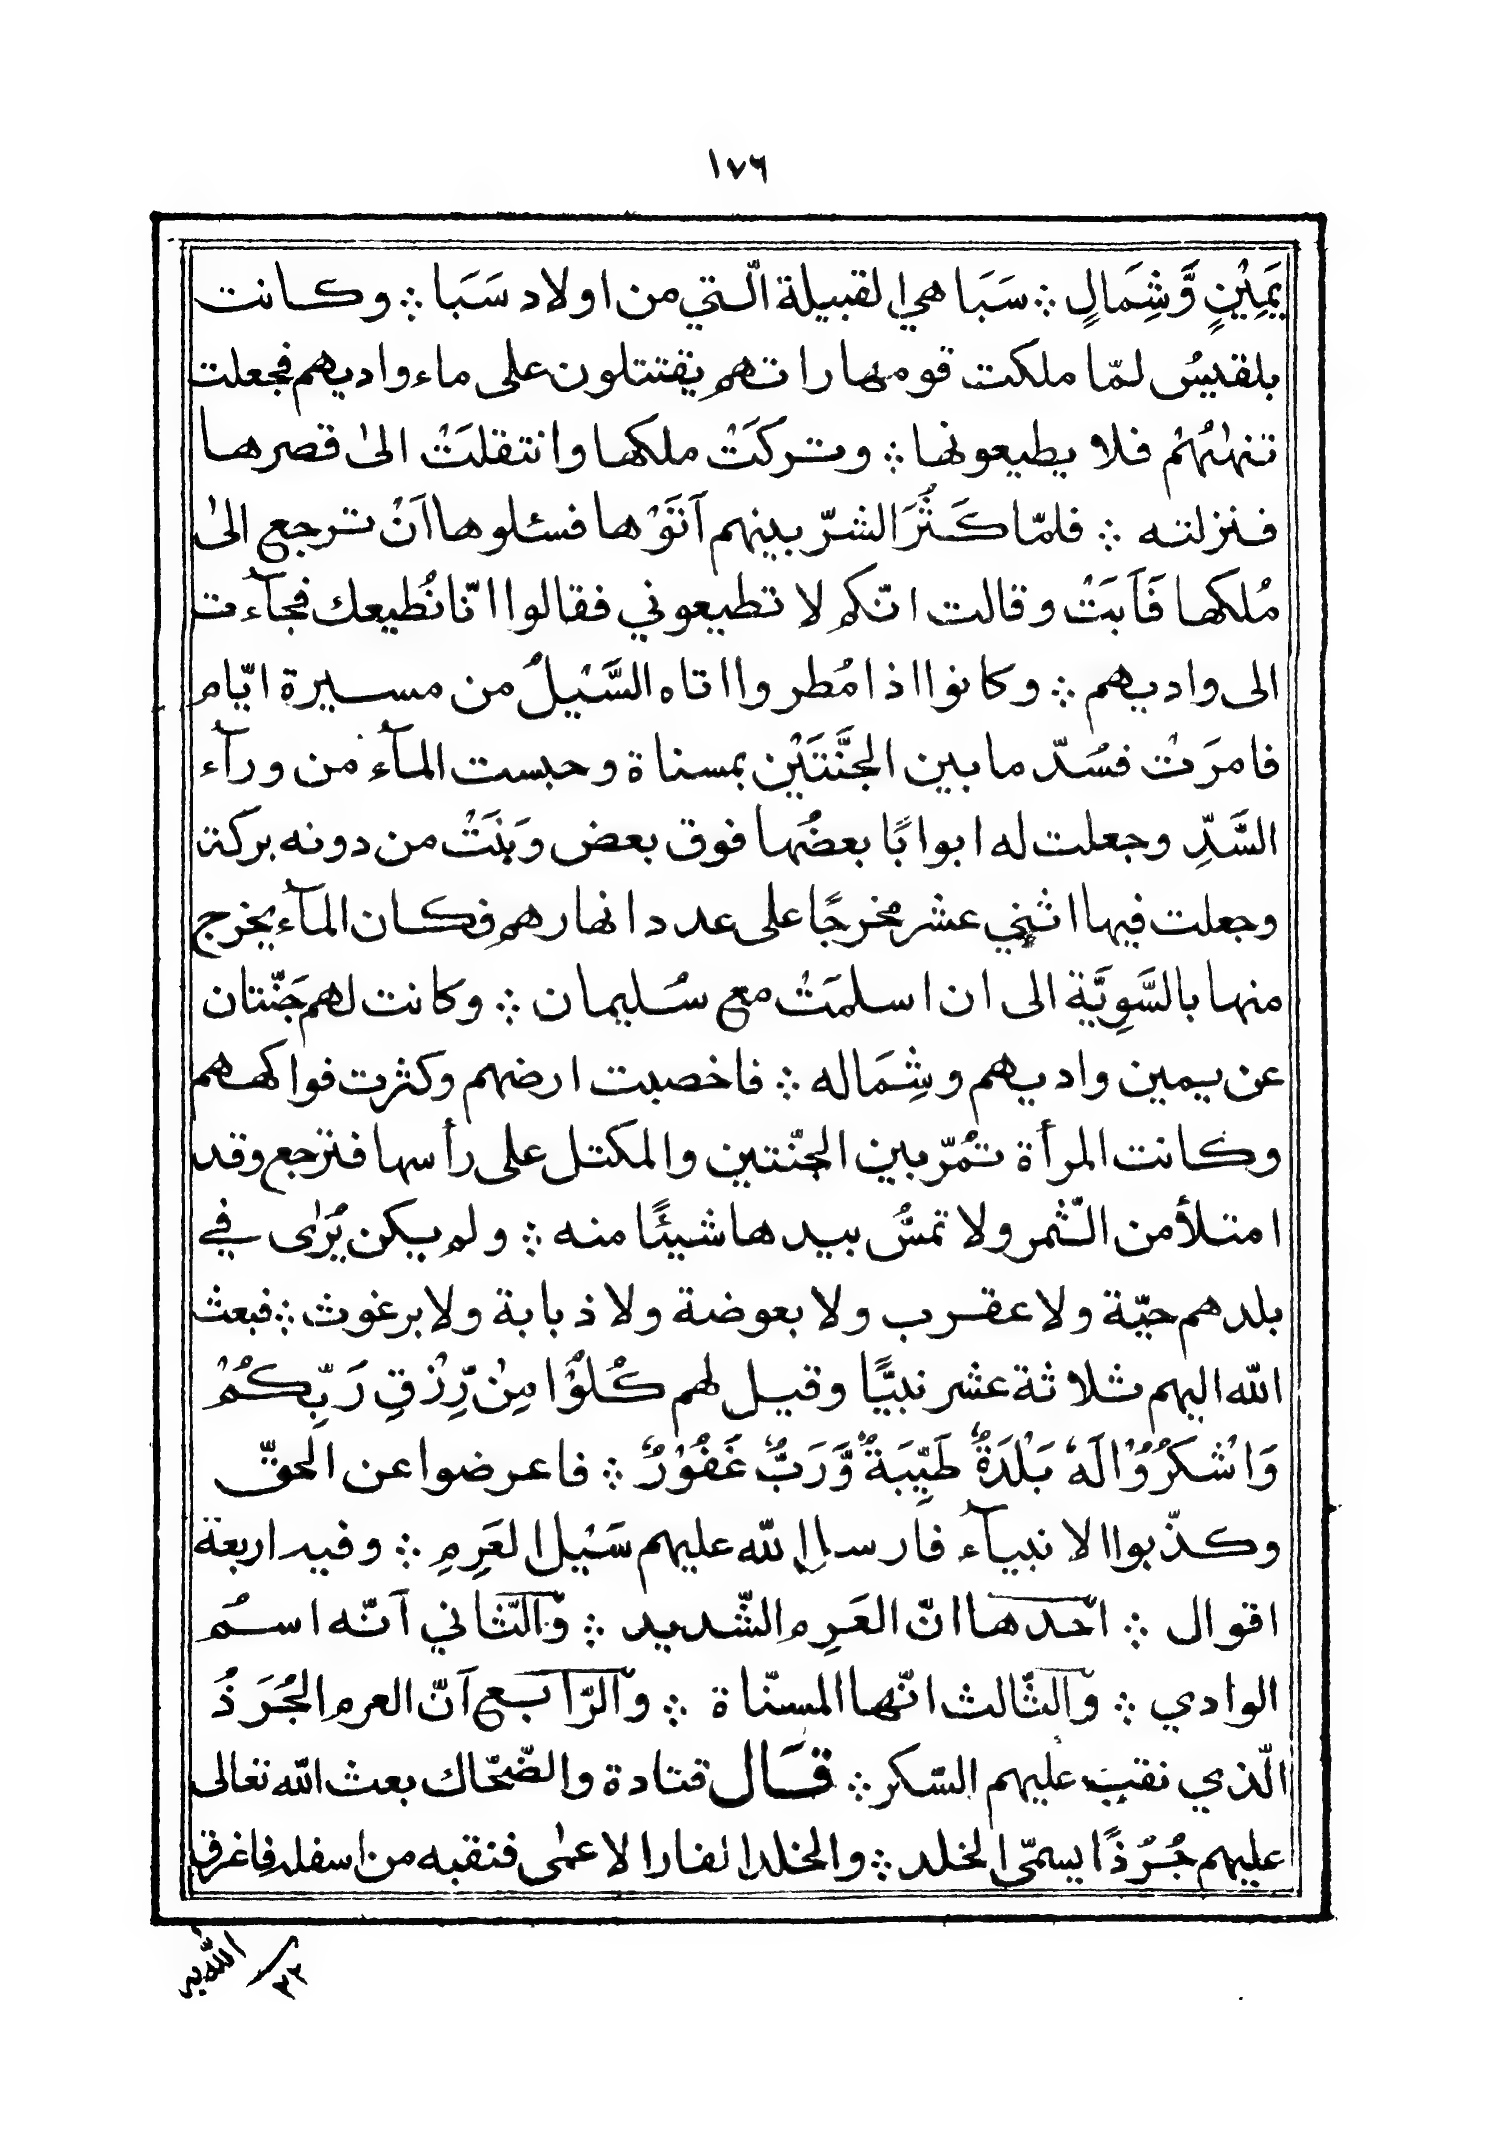 ١٧٦
يَمِيْنٍ وَّشِمَالٍ ۞ سَبَا هي القبيلة الّتي من اولاد سَبَا ۞ وكانت
بلقيسُ لمّا ملكت قومها راتهم يقتتلون على ماء واديهم فجعلت
تنهٰىهُمْ فلا يطيعونها ۞ وتركَتْ ملكها وانتقلَتْ الىٰ قصرها
فنزلته ۞ فلمّا كَثُرَ الشرّ بينهم اَتَوْها فسئلوها اَنْ ترجع الىٰ
مُلكها فَاَبَتْ وقالت انّكم لا تطيعوني فقالوا انّا نُطيعك فجآءت
الى واديهم ۞ وكانوا اذا مُطروا اتاه السَّيْلُ من مسيرة ايّام
فامرَتْ فسُدّ ما بين الجَنَّتَيْن بمسناة وحبست المآء من ورآء
السَّدِّ وجعلت له ابوابًا بعضُها فوق بعض وَبَنَتْ من دونه بركة
وجعلت فيها اثني عشر مخرجًا على عدد انهارهم فكان المآء يخرج
منها بالسَّوِيَّة الى ان اسلمَتْ مع سُليمان ۞ وكانت لهم جَنّتان
عن يمين واديهم وشِمَاله ۞ فاخصبت ارضهم وكثرت فواكههم
وكانت المرأة تمُرّ بين الجنّتين والمكتل على رأسها فترجع وقد
امتلأ من الثّمر ولا تمسُّ بيدها شيئًا منه ۞ ولم يكن يُرٰى في
بلدهم حيّة ولا عقرب ولا بعوضة ولا ذبابة ولا برغوث ۞ فبعث
الله اليهم ثلاثة عشر نبيًّا وقيل لهم كُلُوْا مِنْ رِّزْقِ رَبِّكُمْ
وَاشْكُرُوْا لَهٗ بَلْدَةٌ طَيِّبَةٌ وَّرَبٌّ غَفُوْرٌ ۞ فاعرضوا عن الحقّ
وكذّبوا الانبيآء فارسل الله عليهم سَيْل العَرِمِ ۞ وفيه اربعة
اقوال ۞ احدها انّ العَرِم الشّديد ۞ والثّاني اَنّه اسمُ
الوادي ۞ والثّالث انّها المسنّاة ۞ والرّابع اَنّ العرم الجُرَذُ
الّذي نقب عليهم السّكر ۞ قَال قتادة والضّحّاك بعث الله تعالى
عليهم جُرُذًا يسمّى الخلد ۞ والخلد الفار الاعمٰى فنقبه من اسفله فاغرق
الله به
٢٣